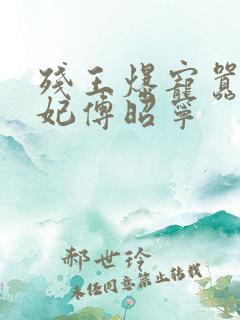 残王爆宠嚣
妃傅昭宁
郝世玲
未经同意禁止转载